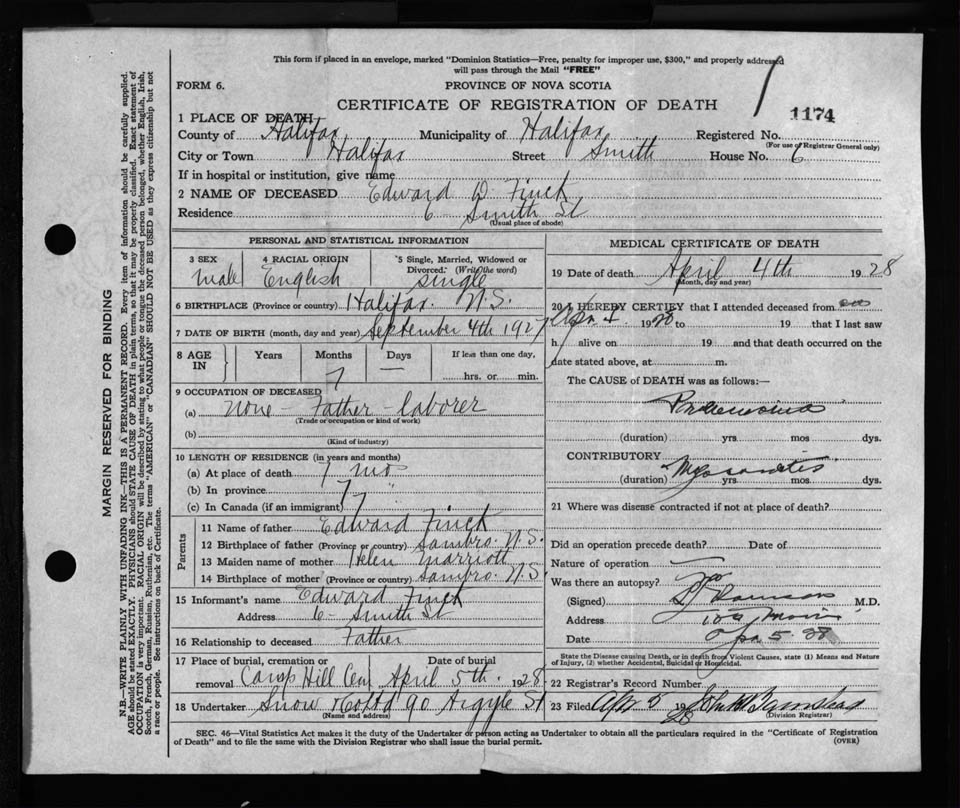 This form if placed in an envelope, marked "Dominion Statistics—Free, penalty for improper use, $300," and properly addressed
will pass through the Mail "FREE"
FORM 6.
PROVINCE OF NOVA SCOTIA
CERTIFICATE OF REGISTRATION OF DEATH
1174
1 PLACE OF DEATH
County of Halifax Municipality of Halifax Registered No.
(For use of Registrar General only)
City or Town Halifax Street Smith House No. 6
If in hospital or institution, give name
2 NAME OF DECEASED Edward D. Finck
Residence 6 Smith St
(Usual place of abode)
PERSONAL AND STATISTICAL INFORMATION
3 SEX 4 RACIAL ORIGIN 5 Single, Married, Widowed or
Divorced. (Write the word)
Male English single
6 BIRTHPLACE (Province or country) Halifax. N.S.
7 DATE OF BIRTH (month, day and year) September 4th 1927
8 AGE IN Years Months Days If less than one day,
7 — hrs. or min.
9 OCCUPATION OF DECEASED
(a) None - Father - laborer
(Trade or occupation or kind of work)
(b)
(Kind of industry)
10 LENGTH OF RESIDENCE (in years and months)
(a) At place of death 7 mos
(b) In province 7 "
(c) In Canada (if an immigrant) 7
Parents
11 Name of father Edward Finck
12 Birthplace of father (Province or country) Sambro. N.S.
13 Maiden name of mother Helen Marriott
14 Birthplace of mother (Province or country) Sambro. N.S.
15 Informant's name Edward Finck
Address 6 - Smith St
16 Relationship to deceased Father
17 Place of burial, cremation or Date of burial
removal Camp Hill Cem April 5th. 1928
18 Undertaker Snow & Co Ltd 90 Argyle St
(Name and address)
MEDICAL CERTIFICATE OF DEATH
19 Date of death April 4th 1928
(Month, day and year)
20 I HEREBY CERTIFY that I attended deceased from
Apr 4 1928 to 19 that I last saw
h alive on 19 and that death occurred on the
date stated above, at m.
The CAUSE of DEATH was as follows:—
(duration) yrs. mos. dys.
CONTRIBUTORY
Myocarditis
(duration) yrs. mos. dys.
21 Where was disease contracted if not at place of death?
Did an operation precede death? Date of
Nature of operation —
Was there an autopsy? no
(Signed) M.D.
Address
Date Apr 5 28
State the Disease causing Death, or in death from Violent Causes, state (1) Means and Nature
of Injury, (2) whether Accidental, Suicidal or Homicidal.
22 Registrar's Record Number
23 Filed Apr 5 1928
(Division Registrar)
SEC. 46—Vital Statistics Act makes it the duty of the Undertaker or person acting as Undertaker to obtain all the particulars required in the "Certificate of Registration
of Death" and to file the same with the Division Registrar who shall issue the burial permit.
(OVER)
MARGIN RESERVED FOR BINDING
N.B.—WRITE PLAINLY WITH UNFADING INK—THIS IS A PERMANENT RECORD. Every item of information should be carefully supplied.
AGE should be stated EXACTLY. PHYSICIANS should STATE CAUSE OF DEATH in plain terms, so that it may be properly classified. Exact statement of
OCCUPATION is very important. RACIAL ORIGIN will be described by stating to what people or tongue the deceased person belonged, whether English, Irish,
Scotch, French, German, Russian, Ruthenian, etc. The terms "AMERICAN" or "CANADIAN" SHOULD NOT BE USED as they express citizenship but not
a race or people. See instructions on back of Certificate.